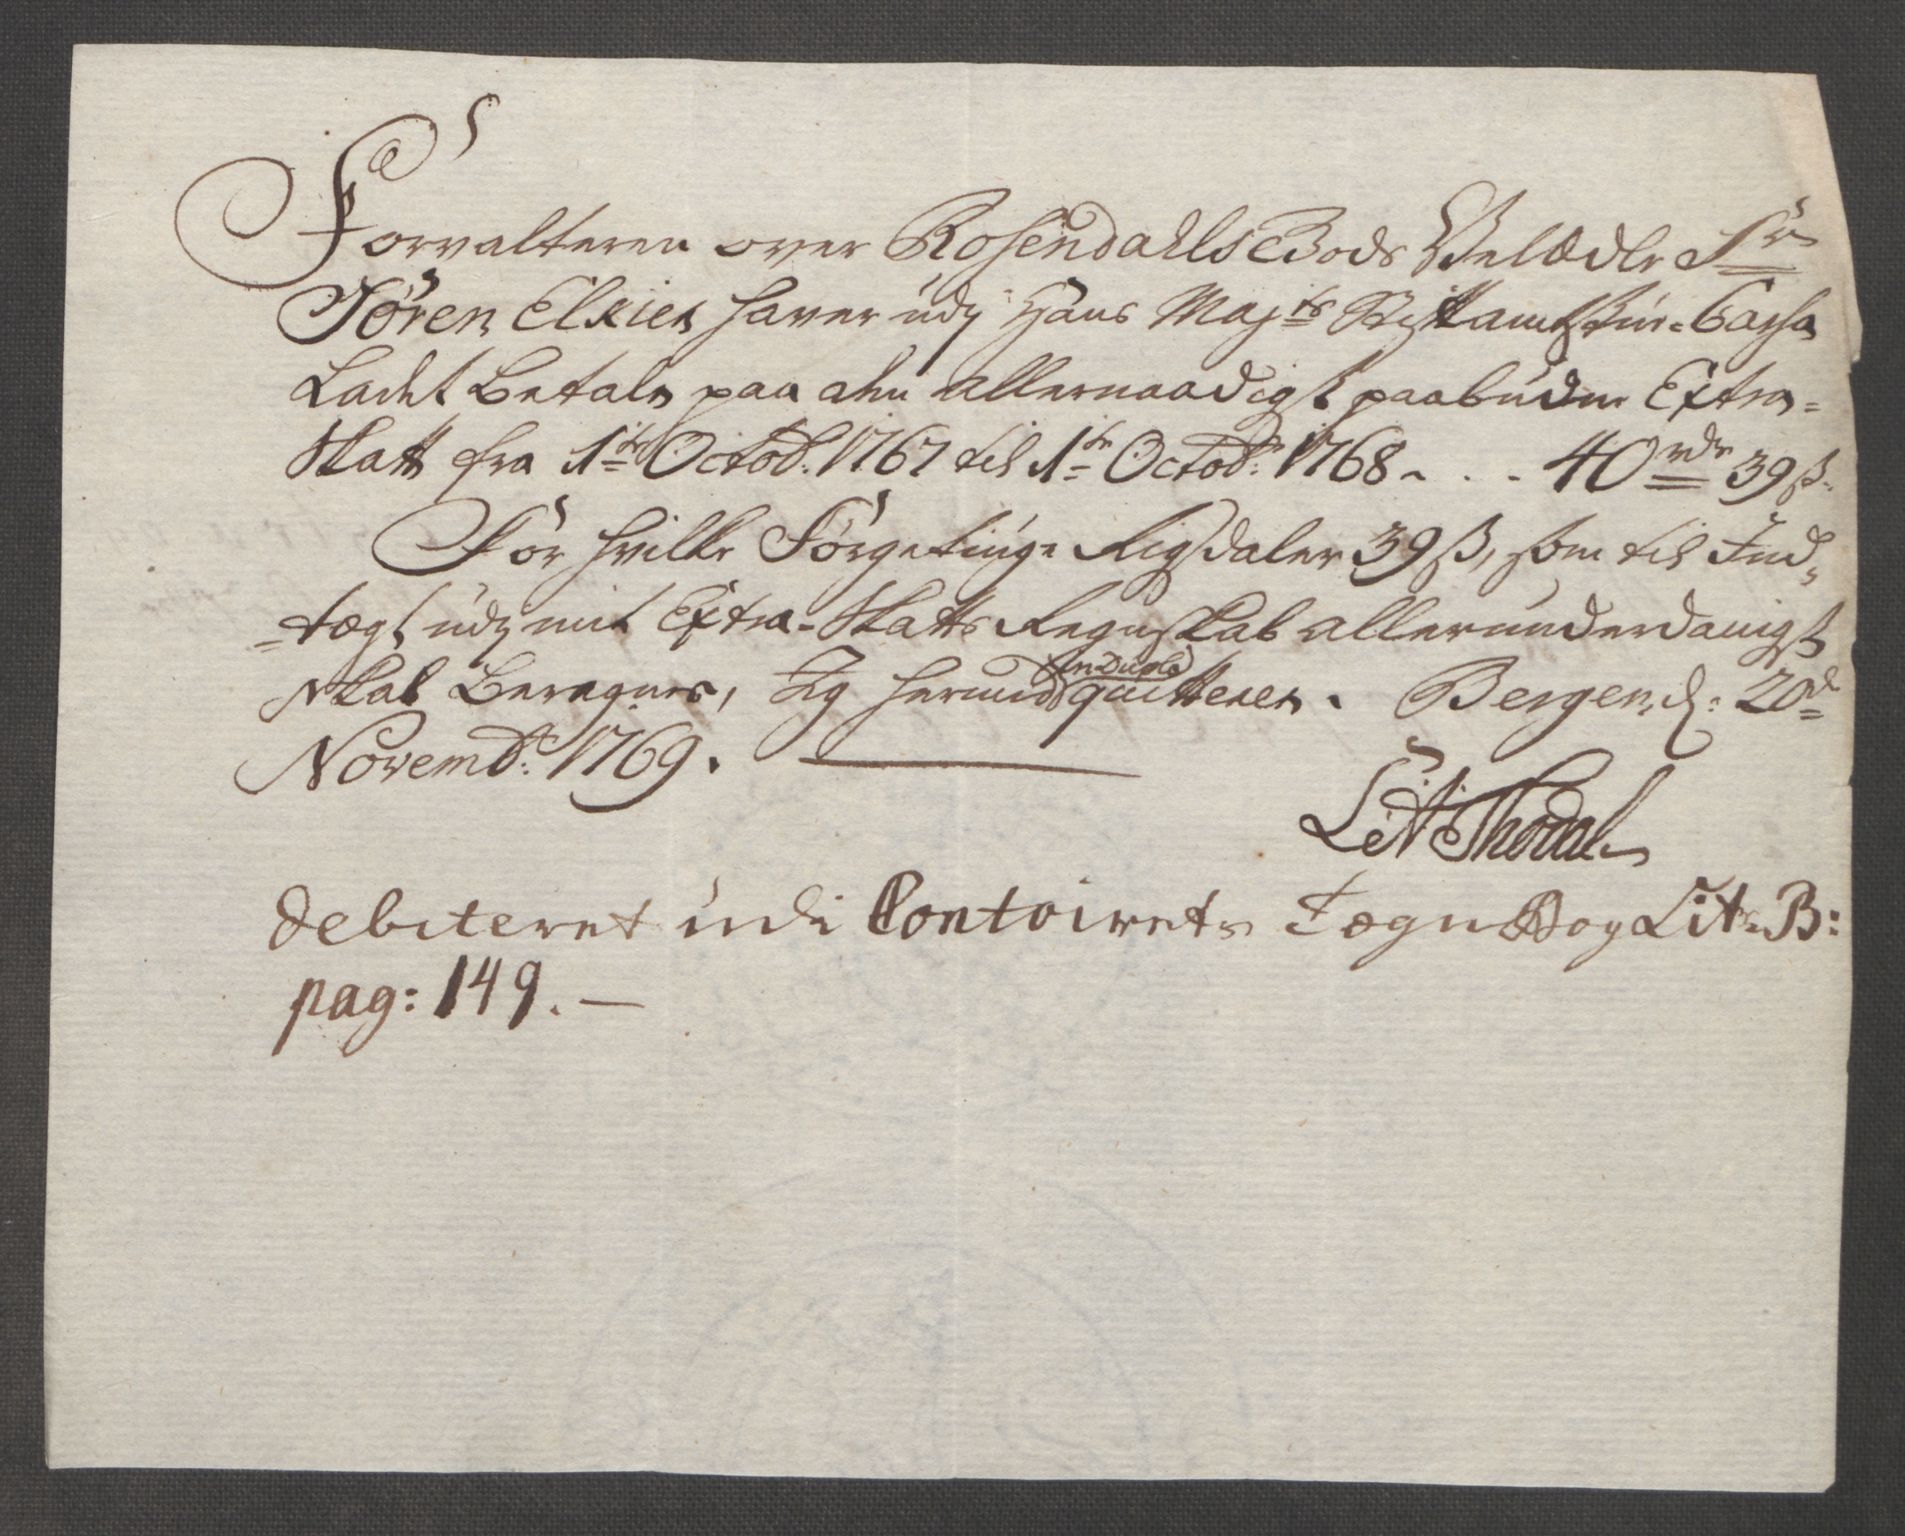 Forvalteren over Rosendahls Gods Velædle Sr
Sören Elkier haver udj Hans Majts Stiftamtstue-Cassa
Ladet Betale paa den allernaadigst paabudne Extra-
Skatt fra 1te Octob: 1767 til 1te Octob: 1768 - . . - 40 rdr 39 ß.
For hvilke Försgetiuge Rigsdaler 39 ß, som til Ind-
-tægt udj mit Extra-Skatts Regnskab allerunderdanigst
skal Beregnes, Jeg herved in Duplo quitterer. Bergen, d: 20de
Novemb: 1769.
Thodal
debiteret udi Contoirets Tegne Bog Litr. B:
pag: 149. —